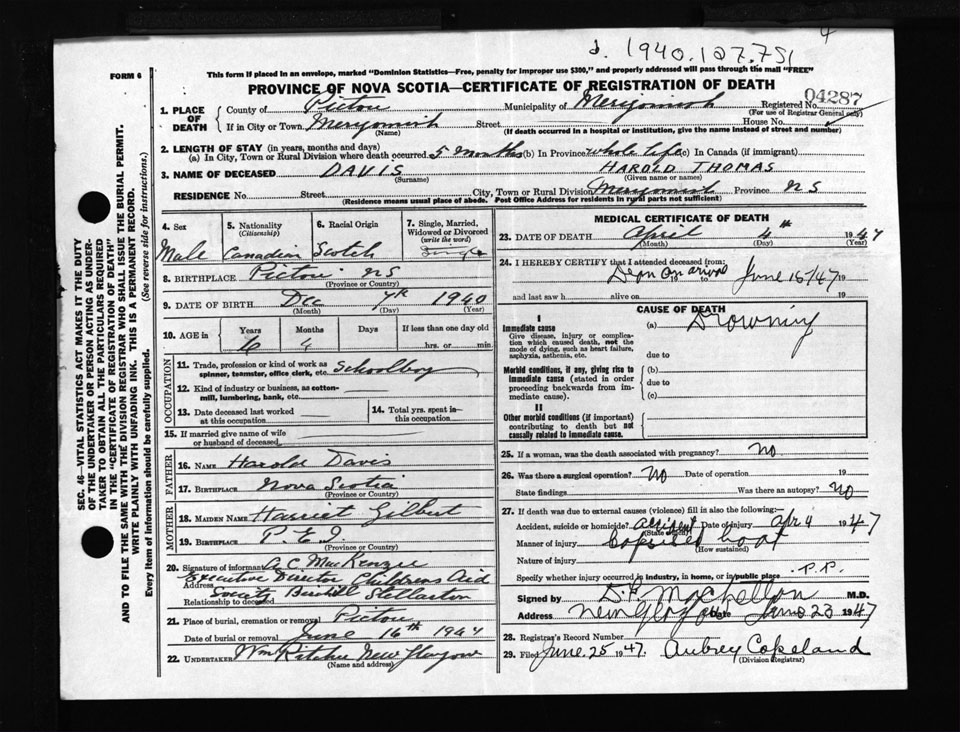 4
d. 1940.127.751
FORM 6
This form if placed in an envelope, marked "Dominion Statistics—Free, penalty for improper use $300," and properly addressed will pass through the mail "FREE"
PROVINCE OF NOVA SCOTIA—CERTIFICATE OF REGISTRATION OF DEATH
04287
1. PLACE OF DEATH
County of Pictou Municipality of Merigomish Registered No.
(For use of Registrar General only)
If in City or Town Merigomish Street House No.
(Name) (If death occurred in a hospital or institution, give the name instead of street and number)
2. LENGTH OF STAY (in years, months and days)
(a) In City, Town or Rural Division where death occurred 5 months (b) In Province whole life (c) In Canada (if immigrant)
3. NAME OF DECEASED DAVIS HAROLD THOMAS
(Surname) (Given name or names)
RESIDENCE No. Street City, Town or Rural Division Merigomish Province NS
(Residence means usual place of abode. Post Office Address for residents in rural parts not sufficient)
4. Sex
Male
5. Nationality
(Citizenship)
Canadian
6. Racial Origin
Scotch
7. Single, Married, Widowed or Divorced
(write the word)
Single
8. BIRTHPLACE Pictou NS
(Province or Country)
9. DATE OF BIRTH Dec 7th 1940
(Month) (Day) (Year)
10. AGE in Years Months Days If less than one day old
6 4 hrs. or min.
OCCUPATION
11. Trade, profession or kind of work as spinner, teamster, office clerk, etc. Schoolboy
12. Kind of industry or business, as cotton-mill, lumbering, bank, etc.
13. Date deceased last worked at this occupation
14. Total yrs. spent in this occupation
15. If married give name of wife or husband of deceased
FATHER
16. NAME Harold Davis
17. BIRTHPLACE Nova Scotia
(Province or Country)
MOTHER
18. MAIDEN NAME Harriet Gilbert
19. BIRTHPLACE P.E.I.
(Province or Country)
20. Signature of informant A. C. MacKenzie
Address Executive Director Childrens Aid
Relationship to deceased Society Stellarton
21. Place of burial, cremation or removal Pictou
Date of burial or removal June 16th 1947
22. UNDERTAKER Wm Ritchie New Glasgow
(Name and address)
MEDICAL CERTIFICATE OF DEATH
23. DATE OF DEATH April 4th 1947
(Month) (Day) (Year)
24. I HEREBY CERTIFY that I attended deceased from:
on arrival 19 to June 16/47 19
and last saw h alive on 19
CAUSE OF DEATH
I
Immediate cause
Give disease, injury or complication which caused death, not the mode of dying, such as heart failure, asphyxia, asthenia, etc.
(a) Drowning
due to
Morbid conditions, if any, giving rise to immediate cause (stated in order proceeding backwards from immediate cause).
(b)
due to
(c)
II
Other morbid conditions (if important) contributing to death but not causally related to immediate cause.
25. If a woman, was the death associated with pregnancy? no
26. Was there a surgical operation? No Date of operation 19
State findings Was there an autopsy? no
27. If death was due to external causes (violence) fill in also the following:—
Accident, suicide or homicide? accident Date of injury Apr 4 1947
(State which)
Manner of injury Capsized boat
(How sustained)
Nature of injury
Specify whether injury occurred in industry, in home, or in public place P.P.
Signed by M.D.
Address New Glasgow Date June 23 1947
28. Registrar's Record Number
29. Filed June 25 1947. Aubrey Copeland
(Division Registrar)
SEC. 46—VITAL STATISTICS ACT MAKES IT THE DUTY
OF THE UNDERTAKER OR PERSON ACTING AS UNDER-
TAKER TO OBTAIN ALL THE PARTICULARS REQUIRED
IN THE "CERTIFICATE OF REGISTRATION OF DEATH"
AND TO FILE THE SAME WITH THE DIVISION REGISTRAR WHO SHALL ISSUE THE BURIAL PERMIT.
WRITE PLAINLY WITH UNFADING INK. THIS IS A PERMANENT RECORD.
Every item of information should be carefully supplied. (See reverse side for instructions.)